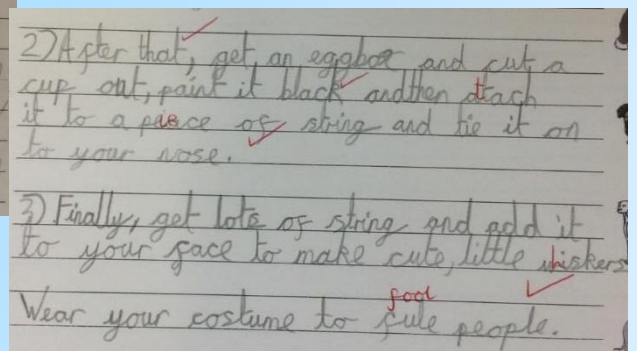 2) After that, get, an eggbox and cut a
cup out, paint it black and then attach
it to a peice of string and tie it on
to your nose.
3) Finally, get lots of string and add it
to your face to make cute, little whiskers
fool
Wear your costume to fule people.